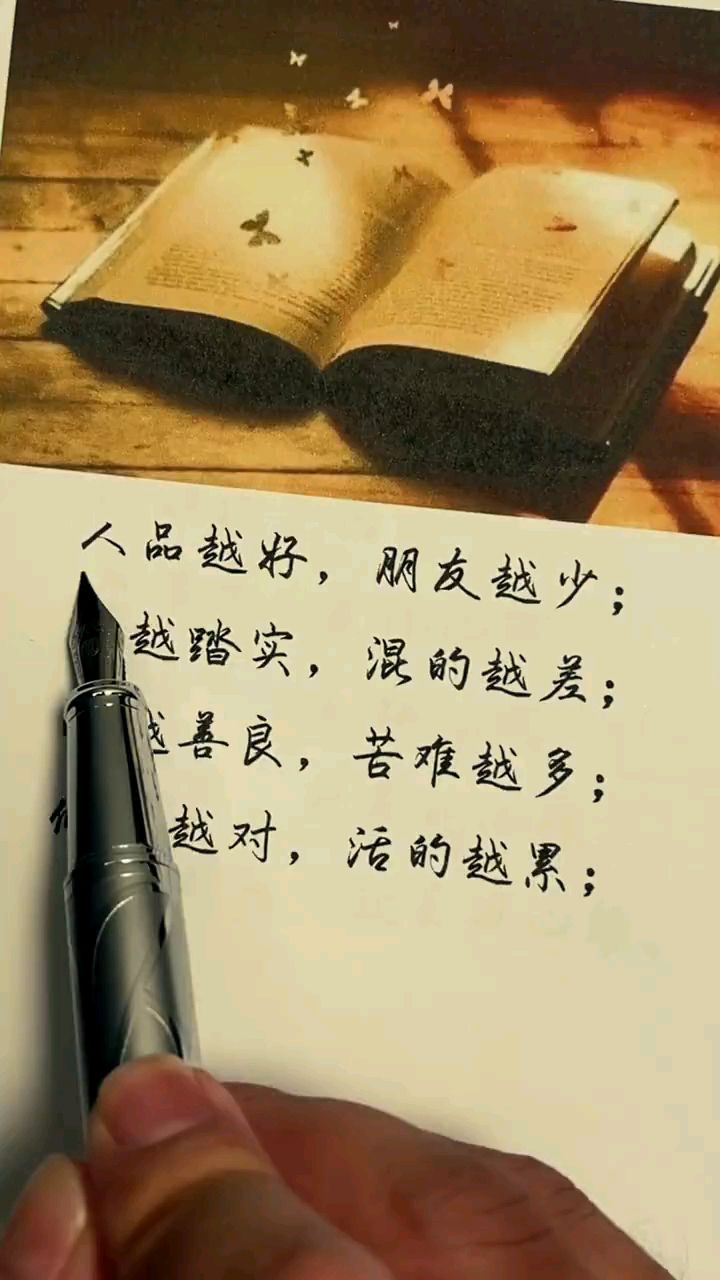 人品越好，朋友越少；
越踏实，混的越差；
越善良，苦难越多；
越对，活的越累；